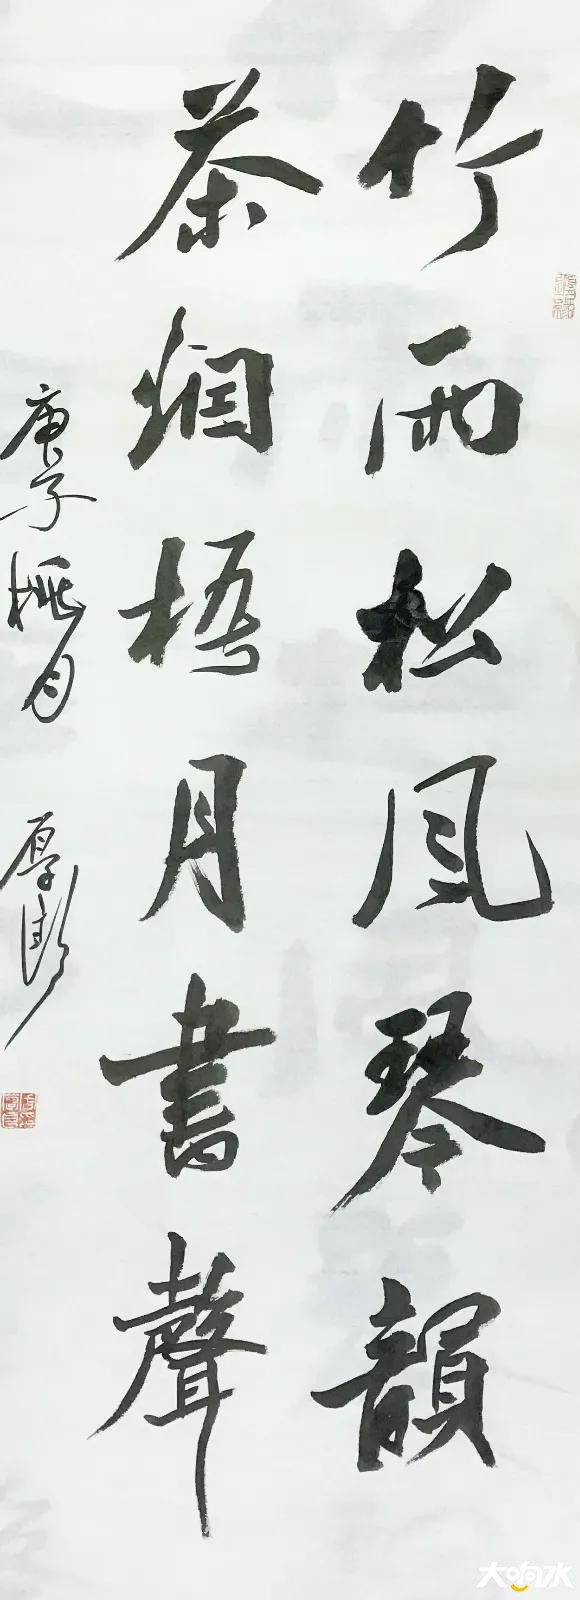 竹雨松风琴韻
茶烟梧月書聲
庚子桃月
大响水